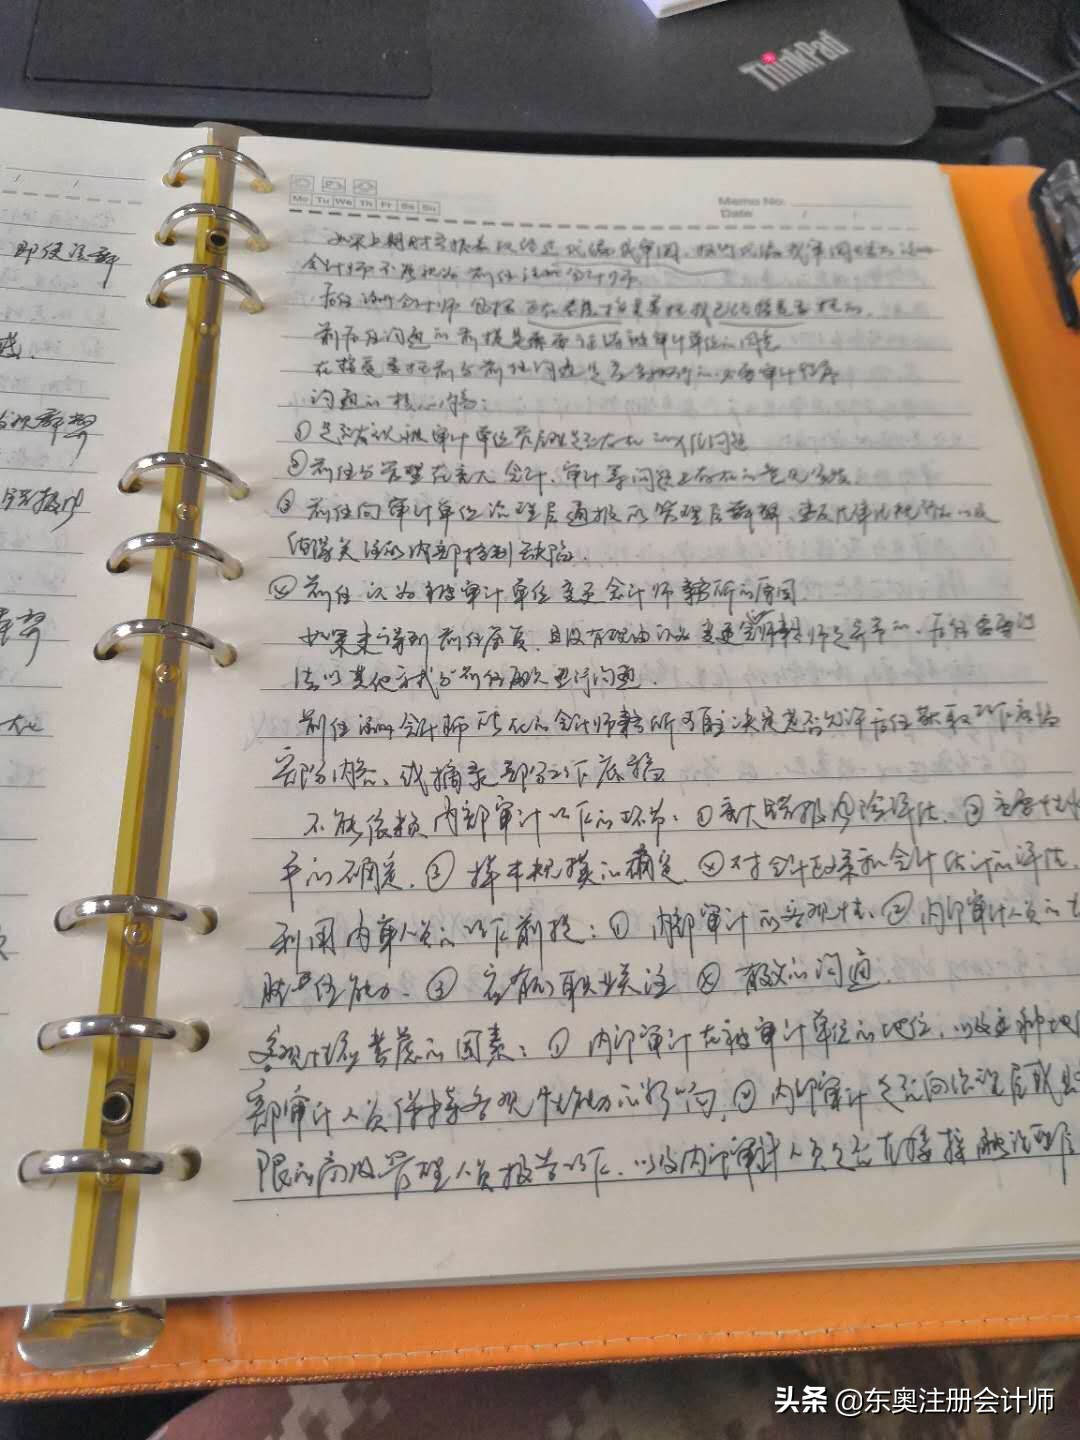 ThinkPad
Mo Tu We Th Fr Sa Su
Memo No.
Date / /
即使注
如果上期财务报表仅经过代编或审阅，执行代编或审阅业务的注册
会计师不能视为前任注册会计师。
后任注册会计师包括正在考虑接受委托或已经接受委托的。
前后任沟通的前提是需要征得被审计单位的同意
在接受委托前与前任沟通是应当执行的必要审计程序
沟通的核心内容：
①是否发现被审计单位管理层是否存在诚信问题
②前任与管理层在重大会计、审计等问题上存在的意见分歧
③前任向被审计单位治理层通报的管理层舞弊、违反法律法规行为以及
值得关注的内部控制缺陷。
④前任认为被审计单位变更会计师事务所的原因
如果未得到前任答复，且没有理由认为变更会计师事务所异常的，后任需要设
法以其他方式与前任再次进行沟通。
前任注册会计师所在的会计师事务所可自主决定是否允许后任获取工作底稿
部分内容、或摘录部分工作底稿
不能依赖内部审计工作的环节：①重大错报风险评估、②重要性水
平的确定、③样本规模的确定、④对会计政策和会计估计的评估、
利用内审人员的工作前提：①内部审计的客观性、②内部审计人员的
胜任能力、③应有的职业关注 ④有效的沟通
客观性应考虑的因素：①内部审计在被审计单位的地位，以及这种地位
部审计人员保持客观性能力的影响，②内部审计是否向治理层或
限的高级管理人员报告工作，以及内部审计人员是否直接接触治理层
头条 @东奥注册会计师